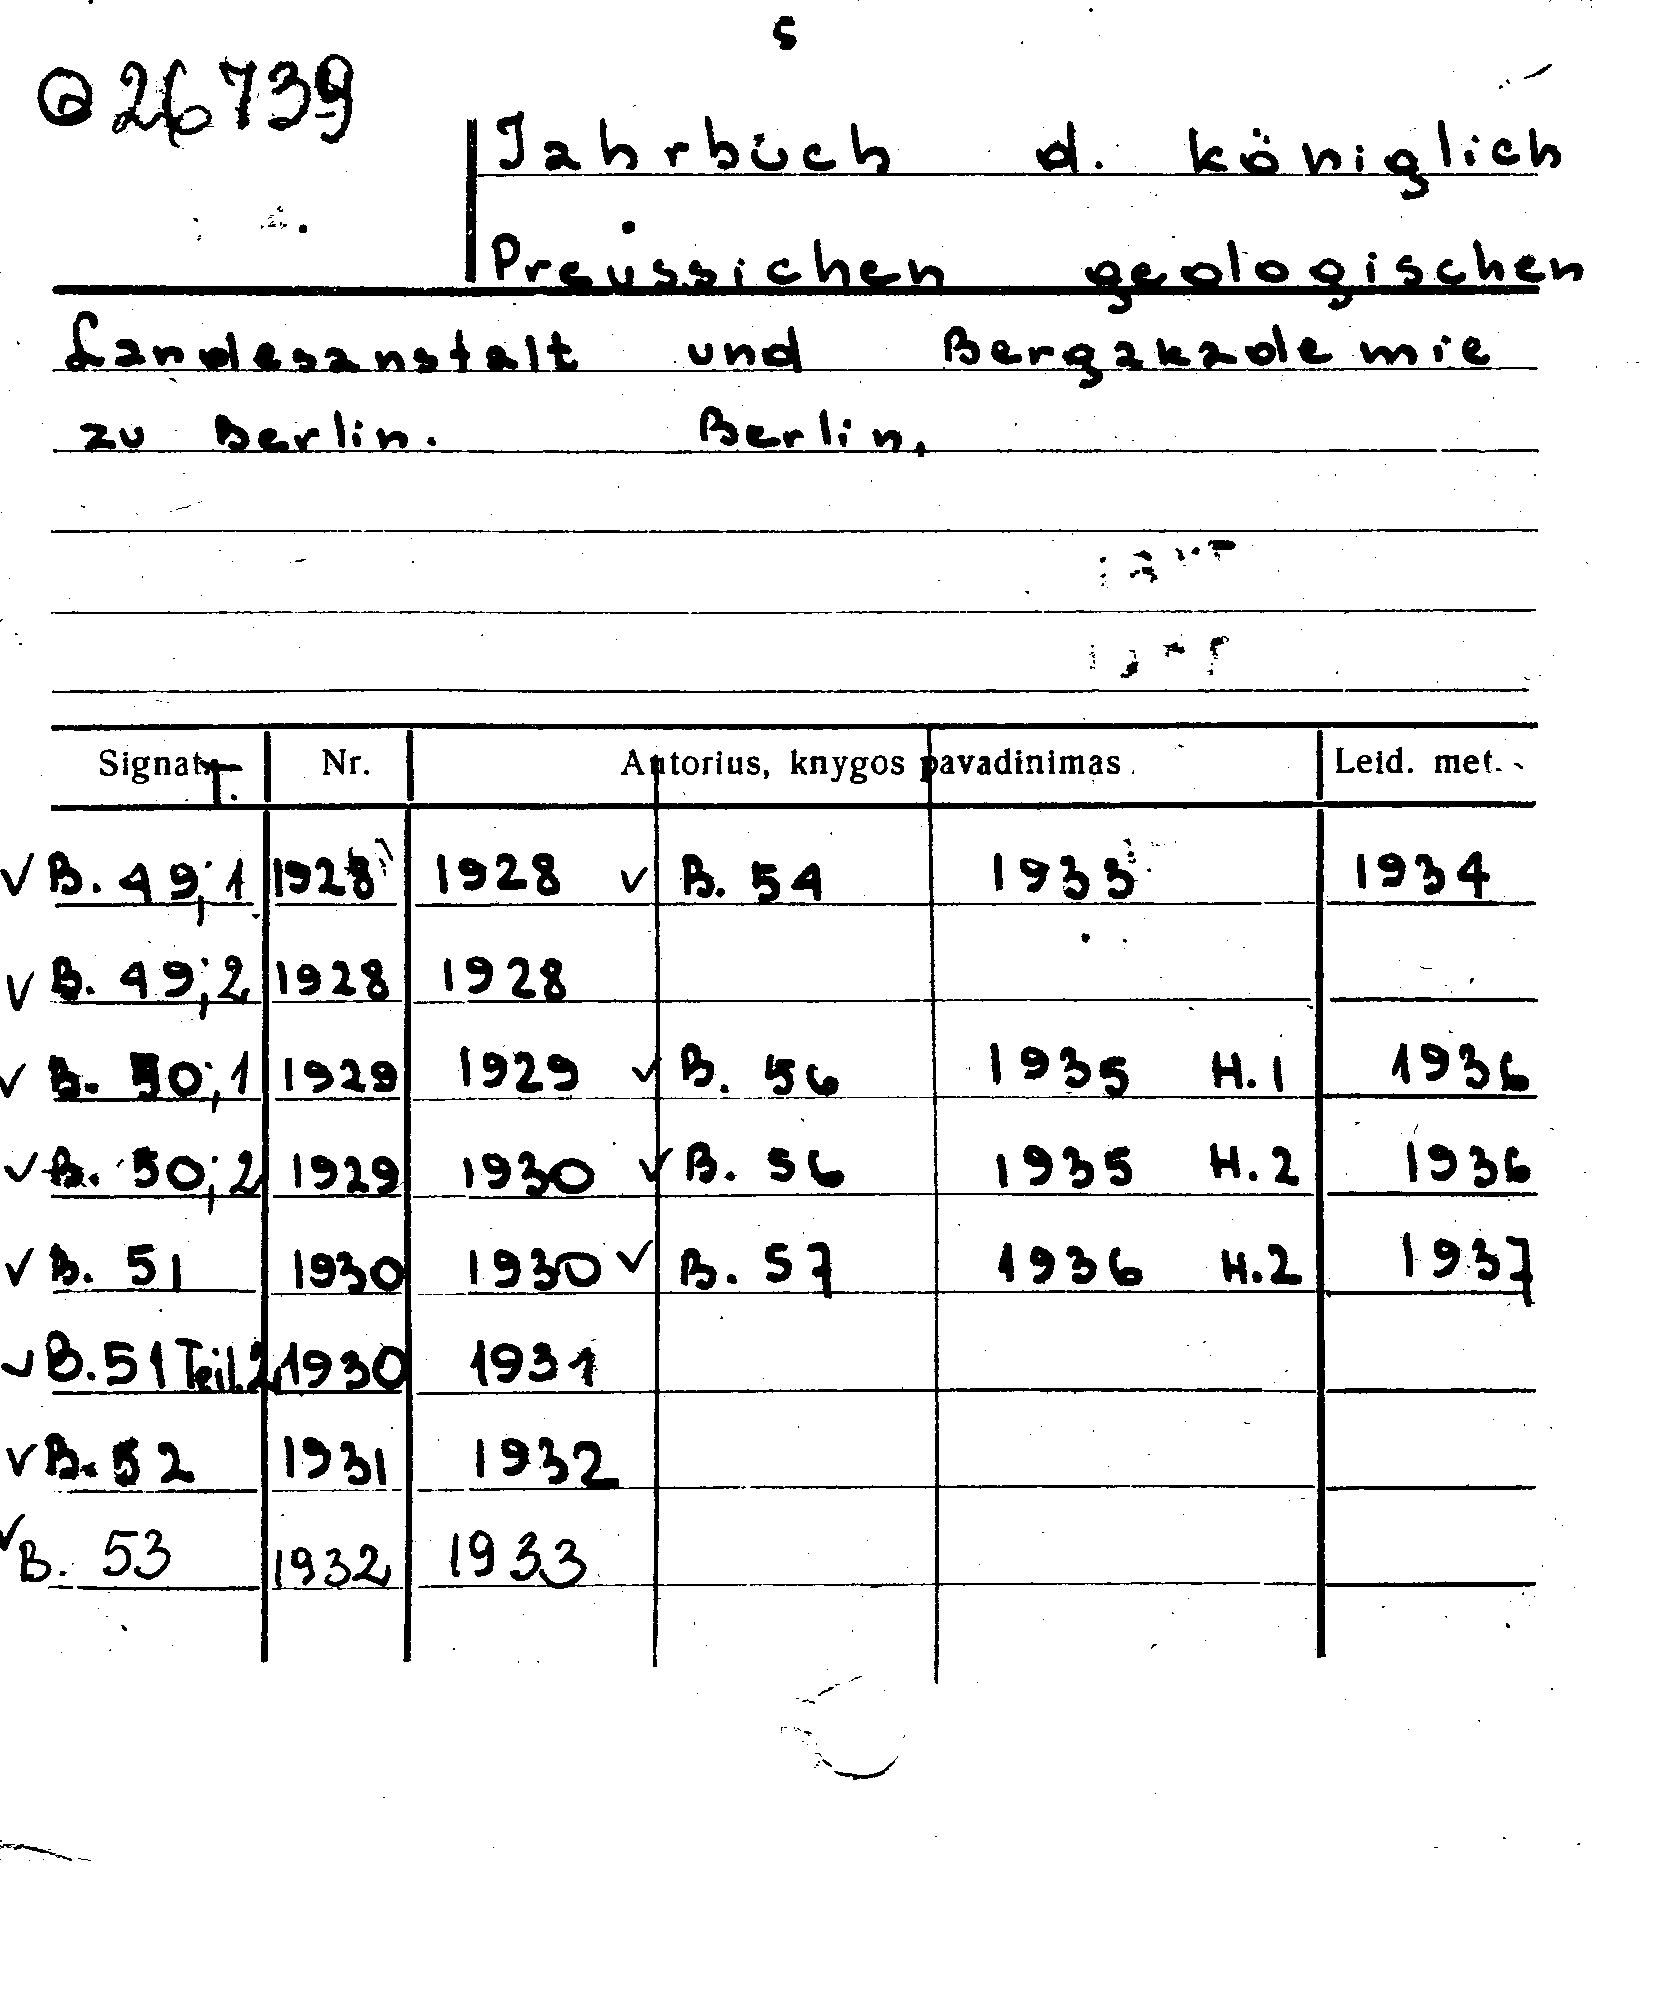 s
26739
Jahrbüch d. königlich
Preüssichen geologischen
Landesanstalt und Bergakademie
zu Berlin. Berlin.
Signat. T. Nr. Autorius, knygos pavadinimas Leid. met.
√ B. 49;1 1928 1928 √ B. 54 1933 1934
√ B. 49;2 1928 1928
√ B. 50;1 1929 1929 √ B. 56 1935 H.1 1936
√ B. 50;2 1929 1930 √ B. 56 1935 H.2 1936
√ B. 51 1930 1930 √ B. 57 1936 H.2 1937
√ B. 51 Teil.2 1930 1931
√ B. 52 1931 1932
√ B. 53 1932 1933